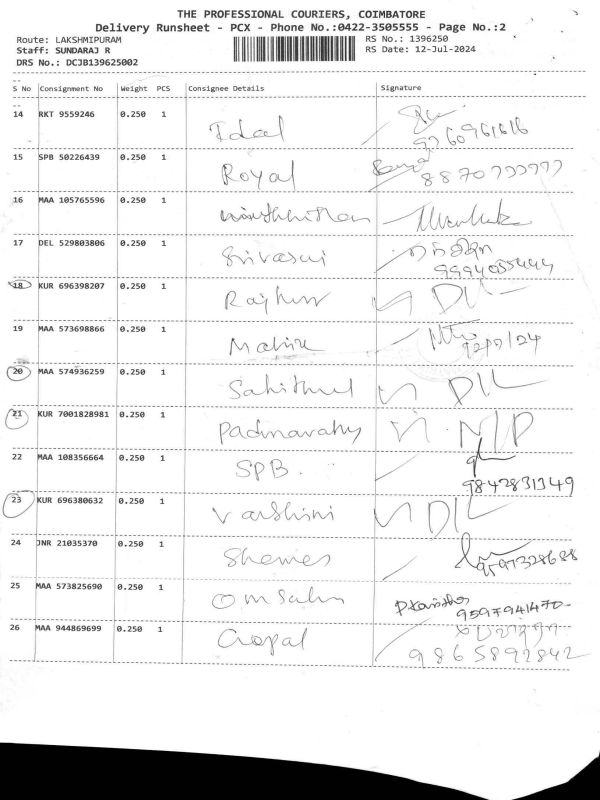 THE PROFESSIONAL COURIERS, COIMBATORE
Delivery Runsheet - PCX - Phone No.:0422-3505555 - Page No.:2
Route: LAKSHMIPURAM RS No.: 1396250
Staff: SUNDARAJ R RS Date: 12-Jul-2024
DRS No.: DCJB139625002
S No Consignment No Weight PCS Consignee Details Signature
14 RKT 9559246 0.250 1 Ideal
9360961616
15 SPB 50226439 0.250 1 Royal
8870777777
16 MAA 105765596 0.250 1
17 DEL 529803806 0.250 1 Srivasui
9994055444
18 KUR 696398207 0.250 1 DIL
19 MAA 573698866 0.250 1
20 MAA 574936259 0.250 1 DIL
21 KUR 7001828981 0.250 1 Padmavathy N/P
22 MAA 108356664 0.250 1 SPB.
9842831349
23 KUR 696380632 0.250 1 Varshini DIL
24 JNR 21035370 0.250 1
9597328688
25 MAA 573825690 0.250 1
9597941470
26 MAA 944869699 0.250 1 Gopal
9865892842